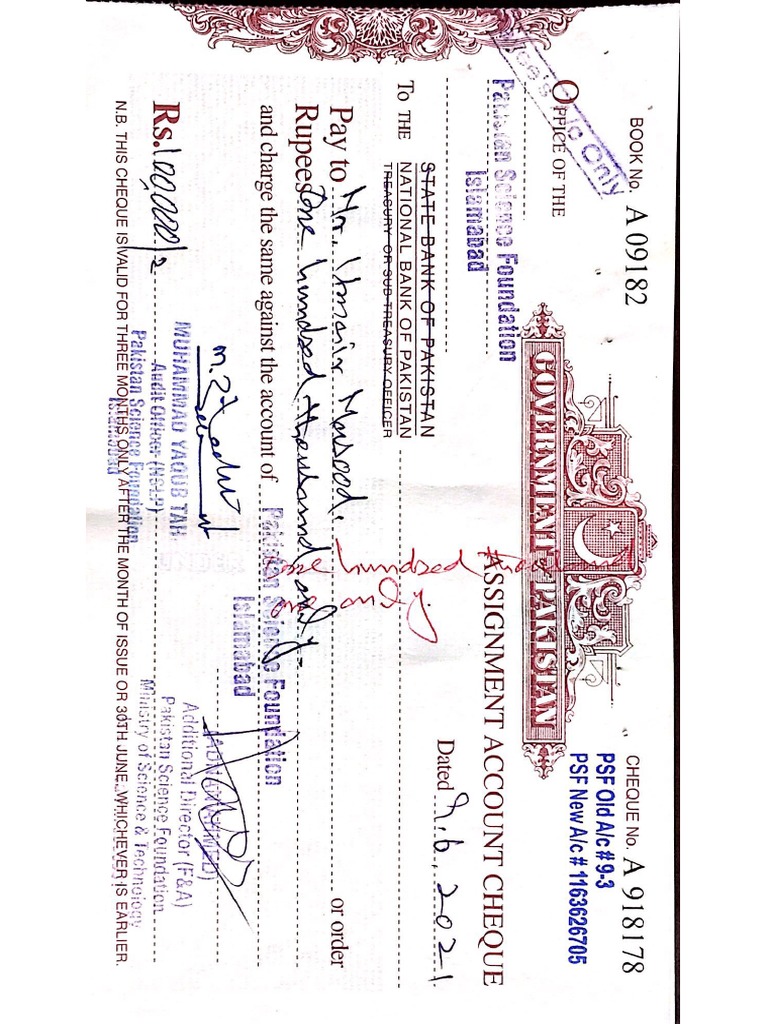 BOOK No. A 09182
CHEQUE No. A 918178
PSF Old A/c # 9-3
PSF New A/c # 1163626705
GOVERNMENT PAKISTAN
OFFICE OF THE
A/c Only
Pakistan Science Foundation
Islamabad
ASSIGNMENT ACCOUNT CHEQUE
Dated 9.6.2021
STATE BANK OF PAKISTAN
To THE NATIONAL BANK OF PAKISTAN
TREASURY OR SUB TREASURY OFFICER
one hundred
one only.
Pay to Mr. Masood. or order
Rupees One hundred thousand only.
and charge the same against the account of Pakistan Science Foundation
Islamabad
Rs. 100,000/=
MUHAMMAD YAQUB TAH
Audit Officer (NSLP)
Pakistan Science Foundation
Islamabad
Additional Director (F&A)
Pakistan Science Foundation
Ministry of Science & Technology
N.B. THIS CHEQUE IS VALID FOR THREE MONTHS ONLY AFTER THE MONTH OF ISSUE OR 30TH JUNE, WHICHEVER IS EARLIER.